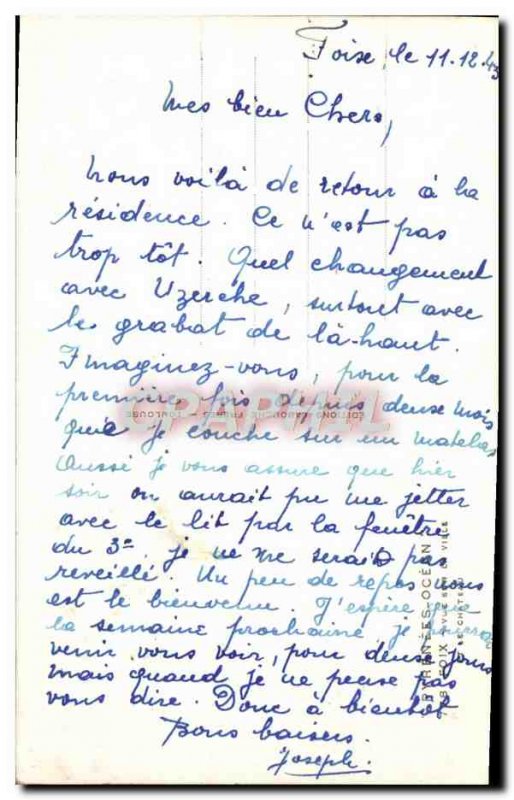 Foix, le 11.12.43
Mes bien Chers,
Nous voilà de retour à la
résidence. Ce n'est pas
trop tôt. Quel changement
avec Uzerche, surtout avec
le grabat de là-haut.
Imaginez-vous, pour la
première fois depuis deux mois
que je couche sur un matelas
Aussi je vous assure que hier
soir on aurait pu me jetter
avec le lit par la fenêtre
du 3e, je ne me serais pas
reveillé. Un peu de repos nous
est le bienvenu. J'espère que
la semaine prochaine, je pourrai
venir vous voir, pour deux jours
mais quand je ne peux pas
vous dire. Donc à bientôt
Bons baisers.
Joseph.
CPAPHIL
PYRÉNÉES-OCÉAN
FOIX